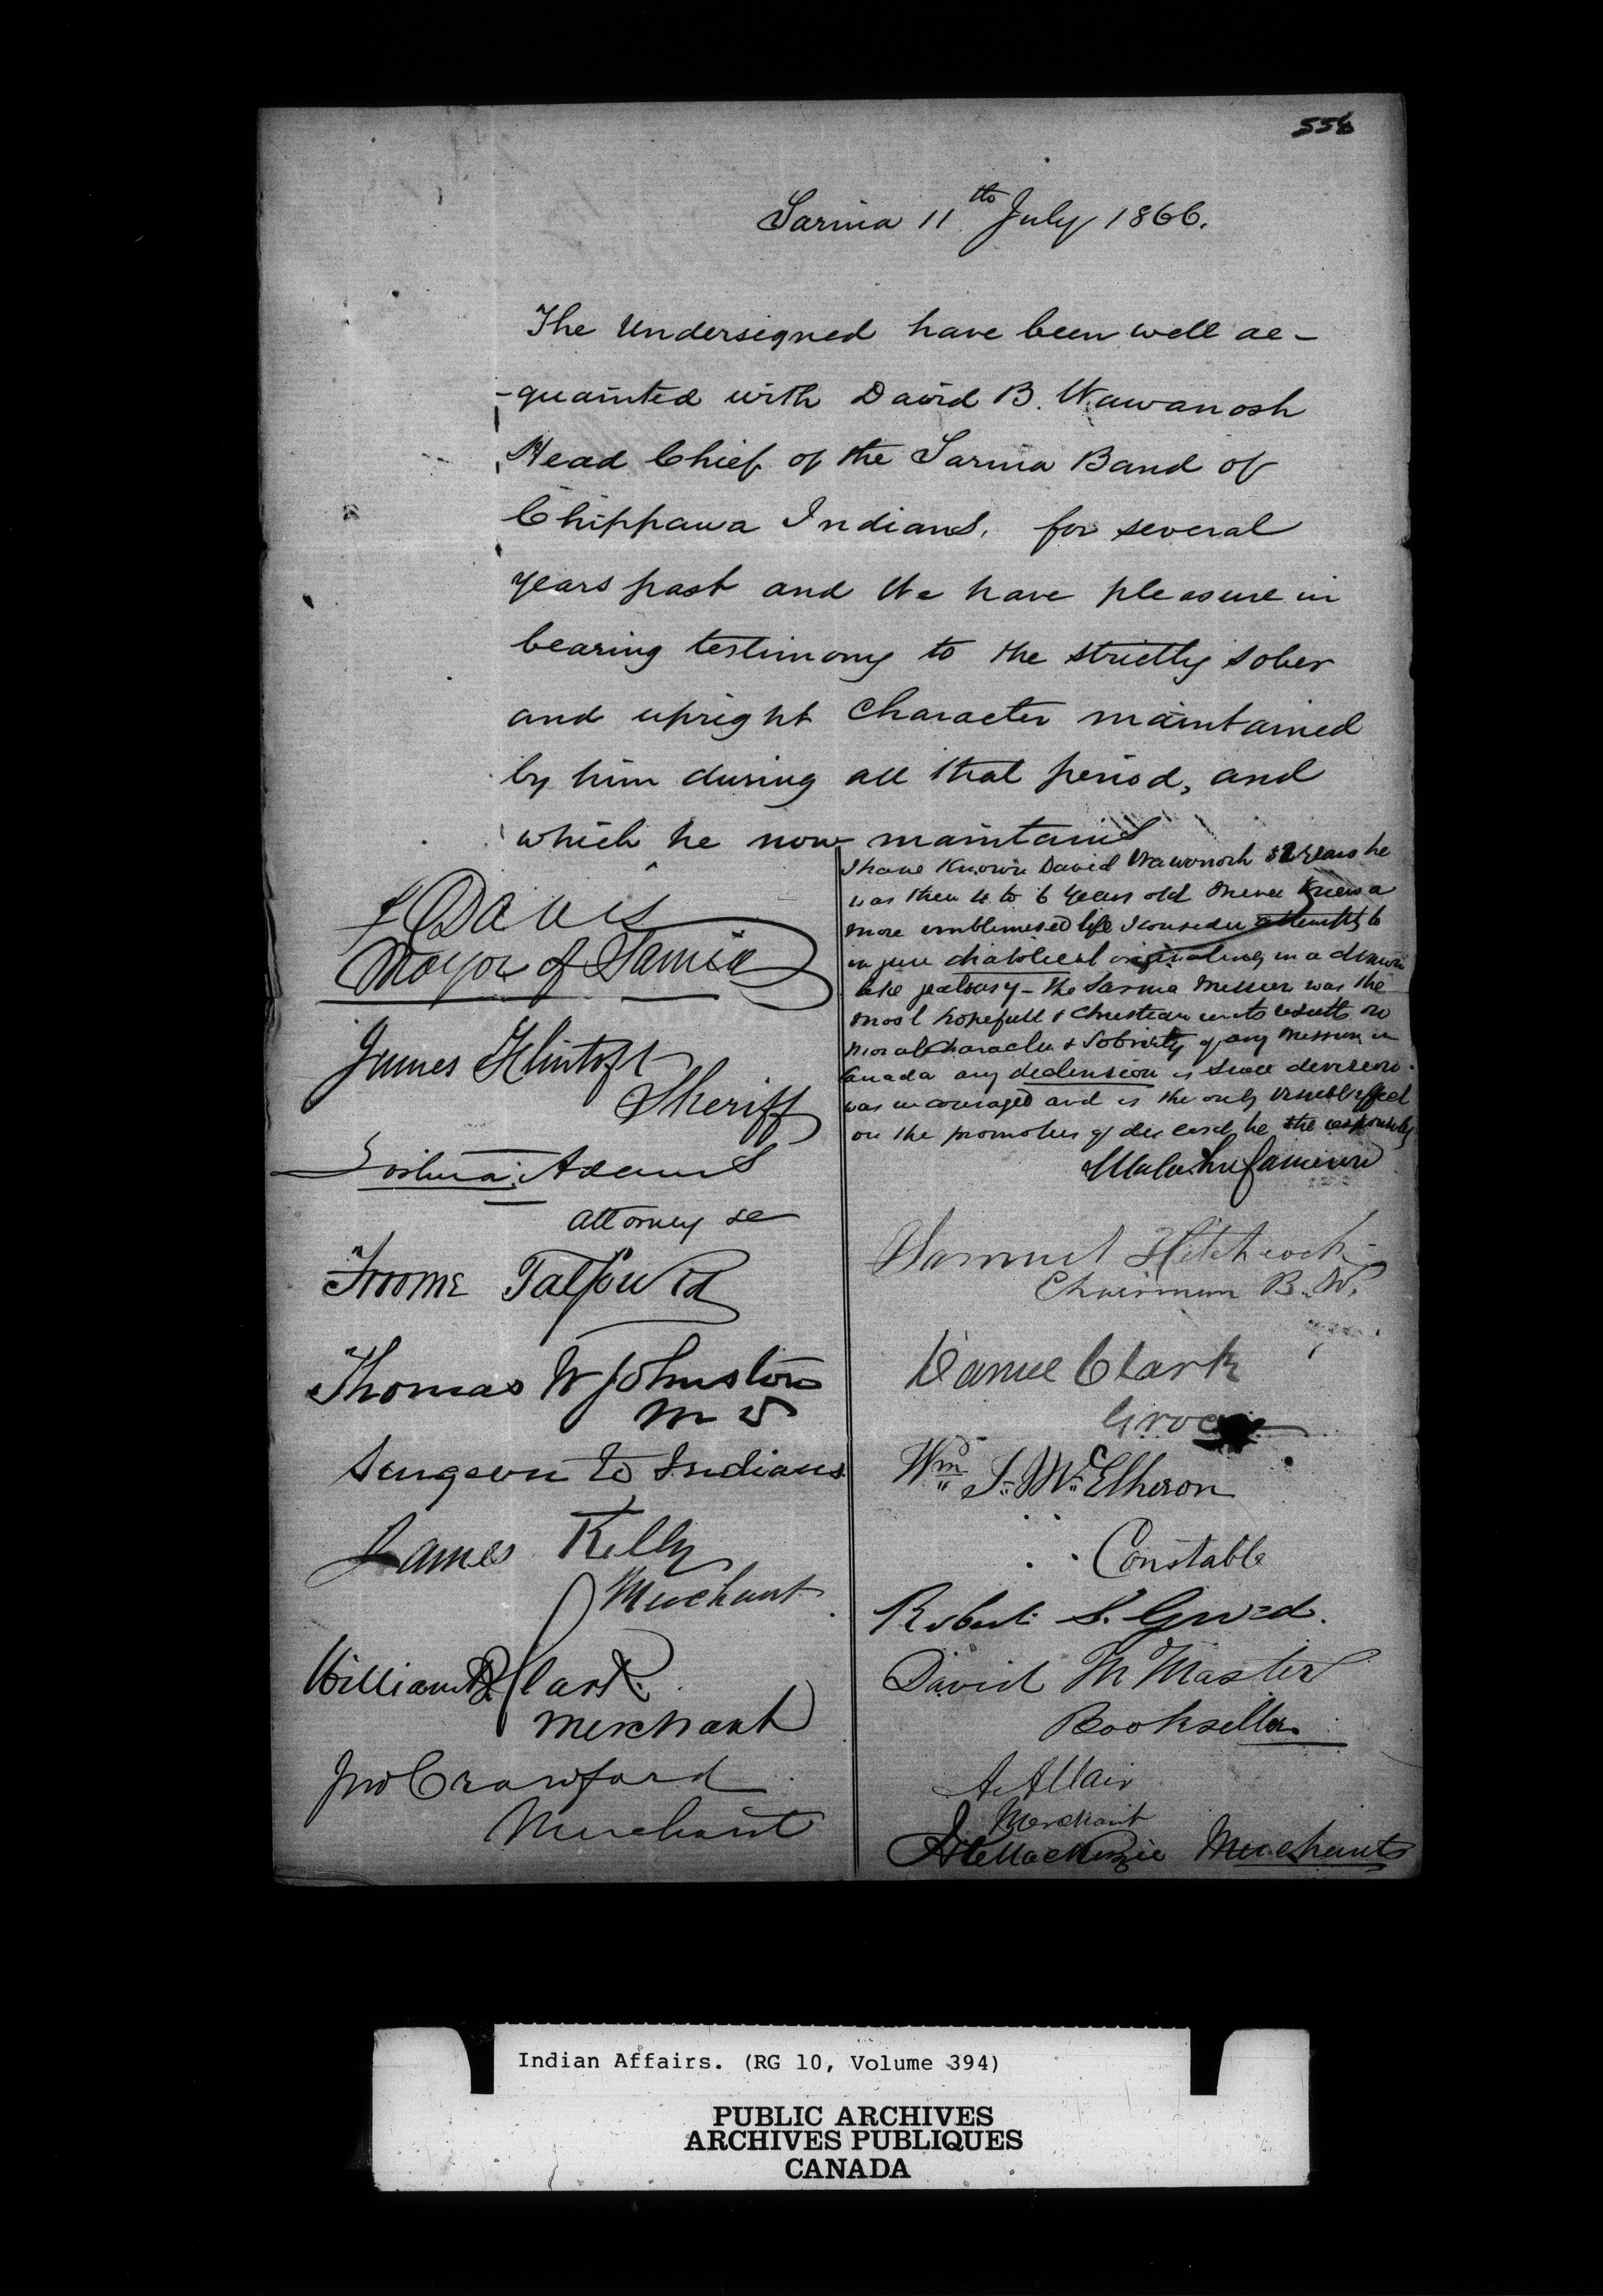 556
Sarnia 11th July 1866.
The Undersigned have been well ac-
-quainted with David B. Wawanosh
Head Chief of the Sarnia Band of
Chippawa Indians, for several
years past and We have pleasure in
bearing testimony to the strictly sober
and upright Character maintained
by him during all that period, and
which he now maintains
Davis
Mayor of Sarnia
James Flintoft
Sheriff
Joshua Adams
Attorney &c
Froome Talfourd
Thomas W Johnston
M D
Surgeon to Indians
James Kelly
Merchant
William B. Clark.
Merchant
Jno Crawford
Merchant
I have Known David Wawanosh 32 Years he
was then 4 to 6 Years old I never Knew a
more unblemished life I consider attempts to
injure diabolical originating in a
like jealousy - The Sarnia Mission was the
most hopefull & Christian in its results on
Moral Character & Sobriety of any Mission in
Canada any declension is since
was encouraged and is the only visible effect
on the promoters of be the responsibility
Malachi Cameron
Samuel Hitchcock
Chairman B. W.
Daniel Clark
Grocer
Wm S. McElheron
Constable
Robert S. Gurd.
David McMaster
Bookseller
A. Alair
Merchant
MacKenzie Merchants
Indian Affairs. (RG 10, Volume 394)
PUBLIC ARCHIVES
ARCHIVES PUBLIQUES
CANADA